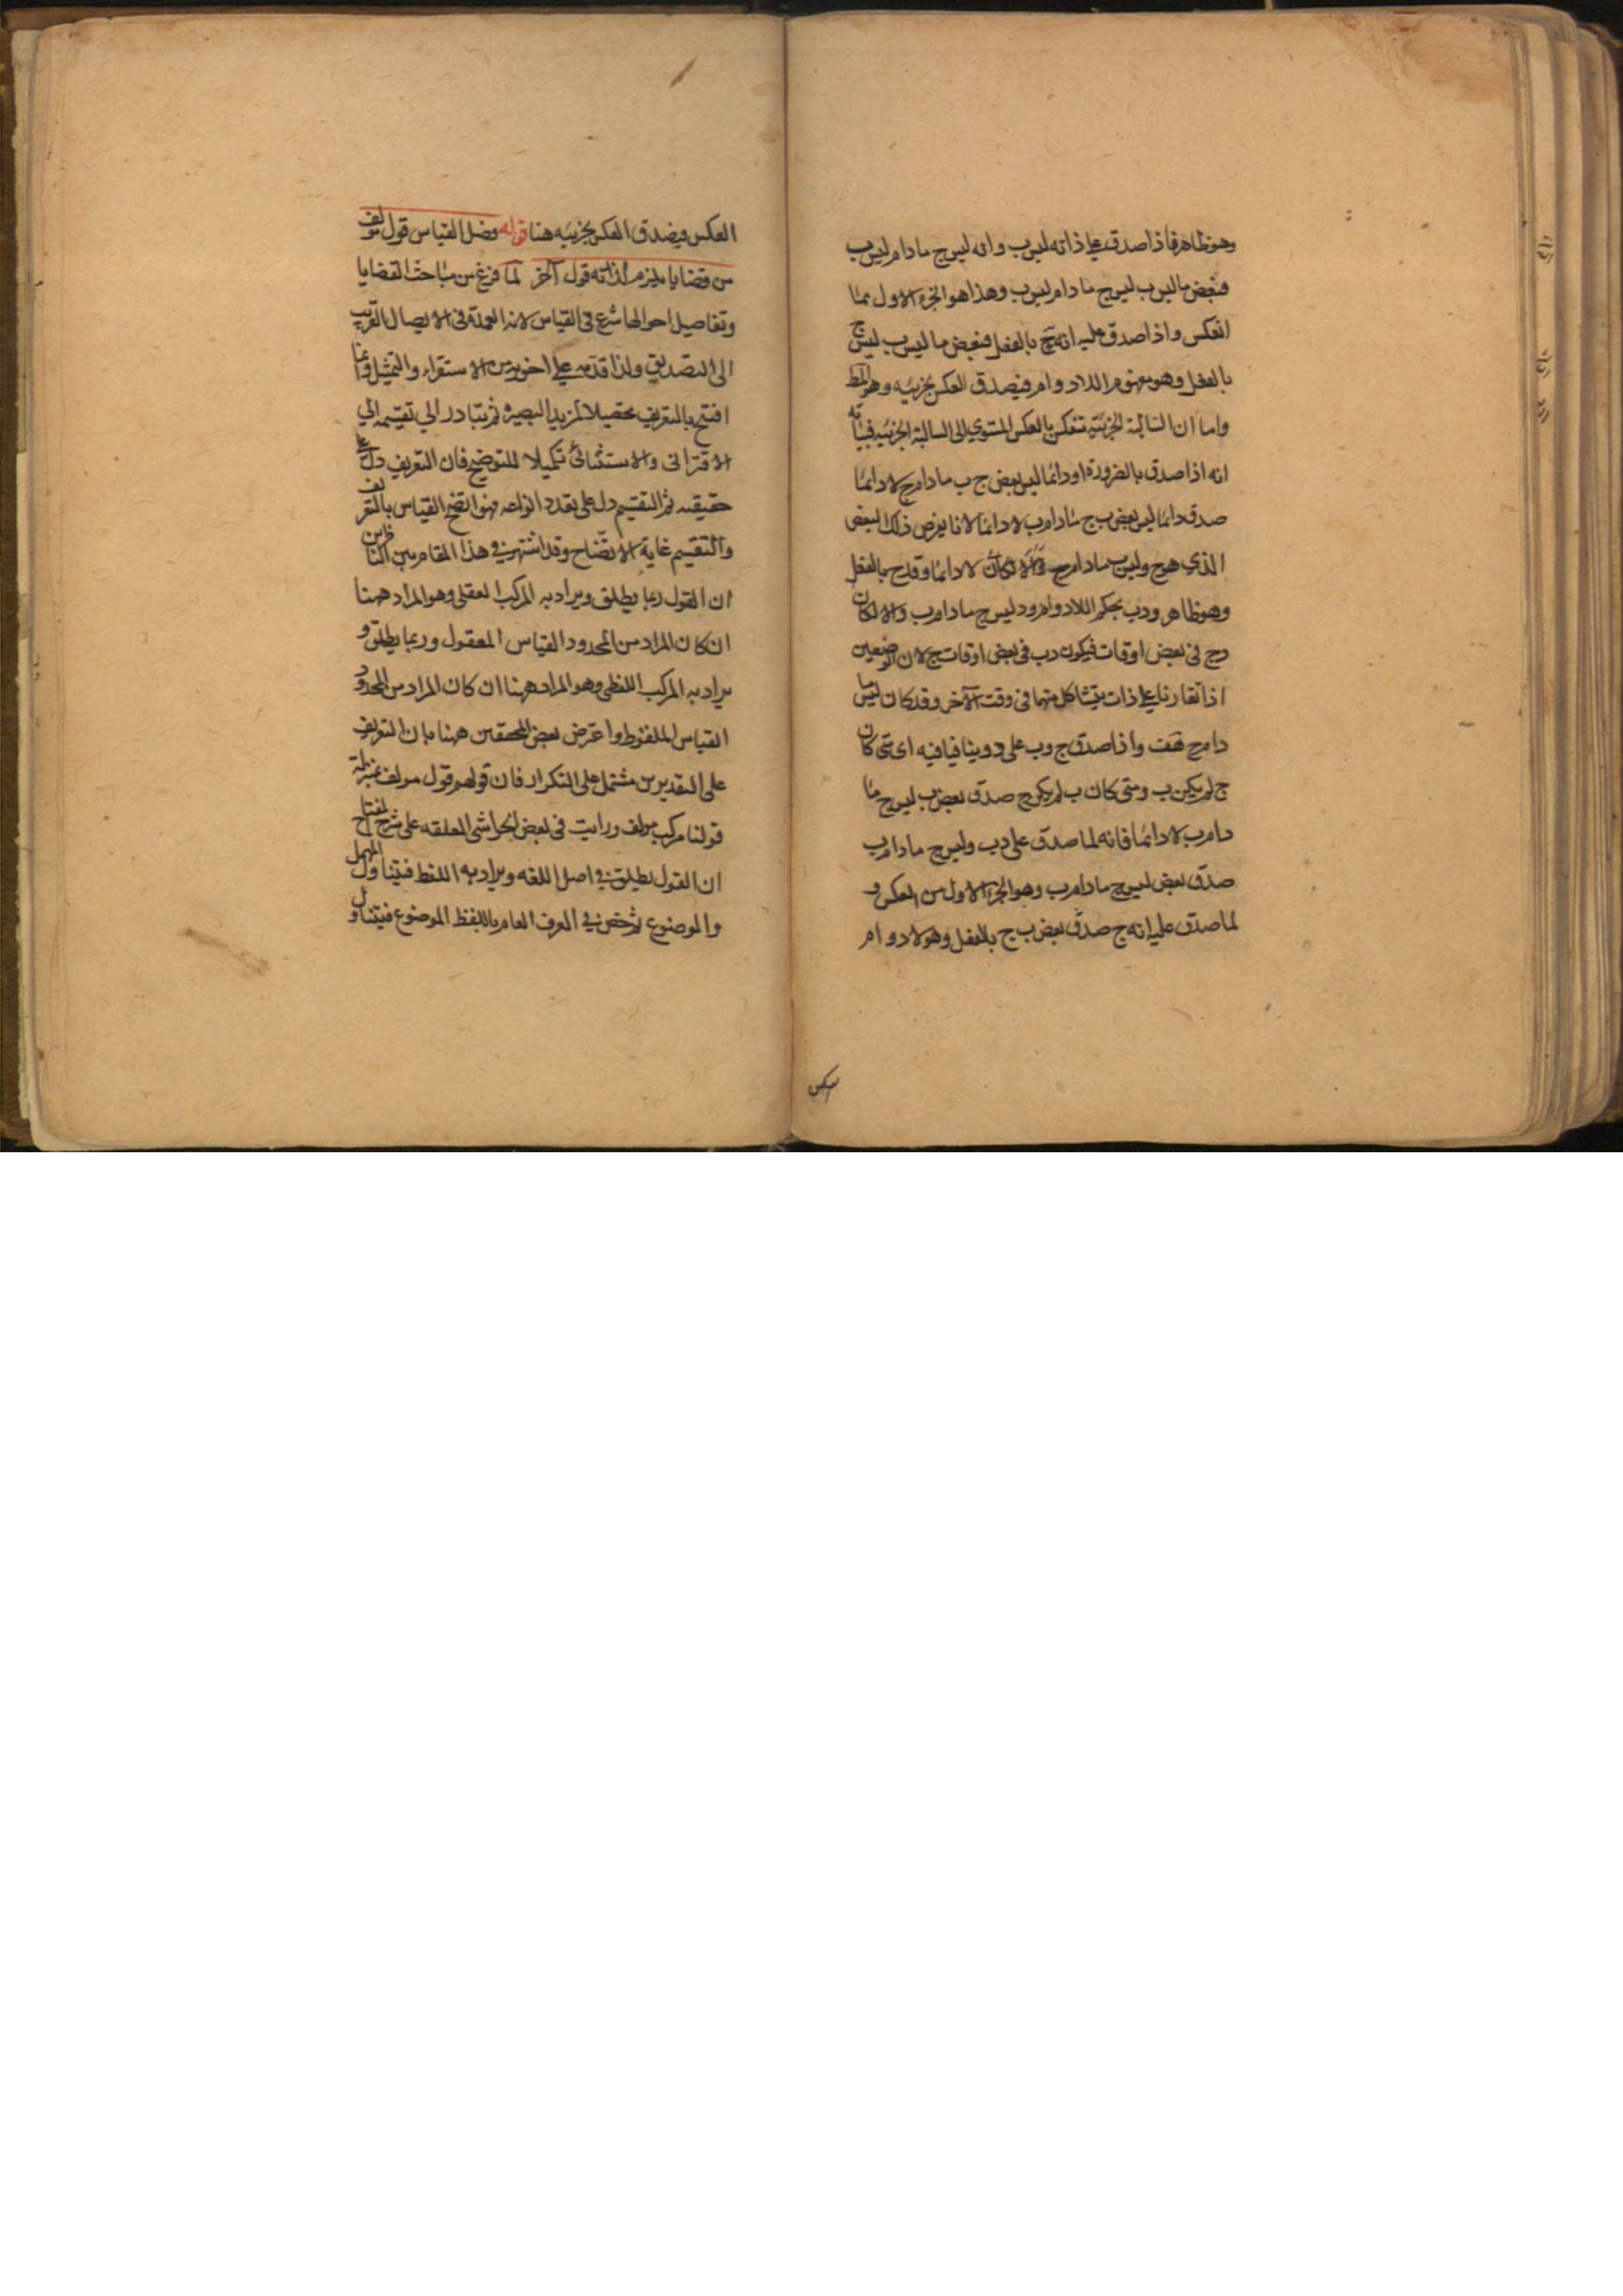 وهو ظاهر فاذا صدق على ذاته ليس ب وانه ليس ج مادام ليس ب
فبعض ماليس ب ليس ج مادام ليس ب وهذا هو الجزء الاول مما
انعكس واذا صدق عليه انه ج بالفعل فبعض ما ليس ب ليس ج
بالفعل وهو مفهوم اللادوام فيصدق العكس بجزئيه وهو المط
واما ان السالبة الجزئية تنعكس بالعكس المستوي الى السالبة الجزئيه فبيانه
انه اذا صدق بالضرورة او دائما ليس بعض ج ب مادام ج لا دائما
صدق دائما ليس بعض ب ج مادام ب لا دائما لانا نفرض ذلك البعض
الذي هو ج وليس ب مادام ج لا دائما وقد ج بالفعل
وهو ظاهر ود ب بحكم اللادوام ود ليس ج مادام ب والا لكان
د ج في بعض اوقات فيكون د ب في بعض اوقات ج لان الوضعين
اذا تقارنا على ذات يتشاكل منهما في وقت الآخر وقد كان ليس ما
دام ج هف واذا صدق ج وب على د وينافيا فيه اى متى كان
ج لم يكن ب ومتى كان ب لم يكن ج صدق بعض ب ليس ج ما
دام ب لا دائما فانه لما صدق على د ب وليس ج مادام ب
صدق بعض ليس ج مادام ب وهو الجزء الاول من العكس و
لما صدق عليه انه ج صدق بعض ب ج بالفعل وهو لا دوام
العكس
العكس فيصدق العكس بجزئيه هنا قوله فصل القياس قول مولف
من قضايا يلزم لذاته قول آخر لما فرغ من مباحث القضايا
وتفاصيل احوالها شرع في القياس لانه العمدة في الايصال القريب
الى التصديق ولذا قدمه على اخويه من الاستقراء والتمثيل وانما
افتتح بالتعريف تحصيلا لمزيد البصيره ثم تبادر الي تقسيمه الي
الاقتراني والاستثنائي تكميلا للتوضيح فان التعريف دل على
حقيقته ثم التقسيم دل على تعدد انواعه فهو اتضح القياس بالتعريف
والتقسيم غاية الاتضاح وقد اشتهر في هذا المقام بين الناظرين
ان القول ربما يطلق ويراد به المركب العقلي وهو المراد ههنا
ان كان المراد من المحدود القياس المعقول وربما يطلق و
يراد به المركب اللفظي وهو المراد ههنا ان كان المراد من المحدود
القياس الملفوظ واعترض بعض المحققين ههنا بان التعريف
على التقديرين مشتمل على التكرار فان قولهم قول مولف بمنزلة
قولنا مركب مولف ورايت في بعض الحواشي المعلقه على شرح المفتاح
ان القول يطلق في اصل اللغه ويراد به اللفظ فيتناول المهمل
والموضوع ثم خص في العرف العام باللفظ الموضوع فيتناول